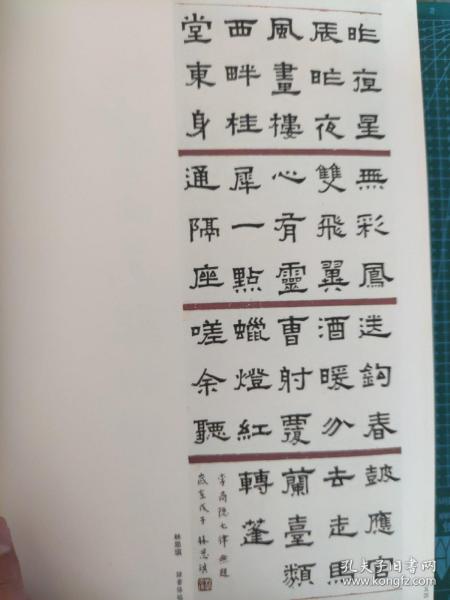 昨夜星
辰昨夜
風畫樓
西畔桂
堂東身
無彩鳳
雙飛翼
心有靈
犀一點
通隔座
送鈎春
酒暖分
曹射覆
蠟燈紅
嗟余聽
鼓應官
去走馬
蘭臺類
轉蓬
李商隱七律無題
歲在戊子林思
孔夫子旧书网